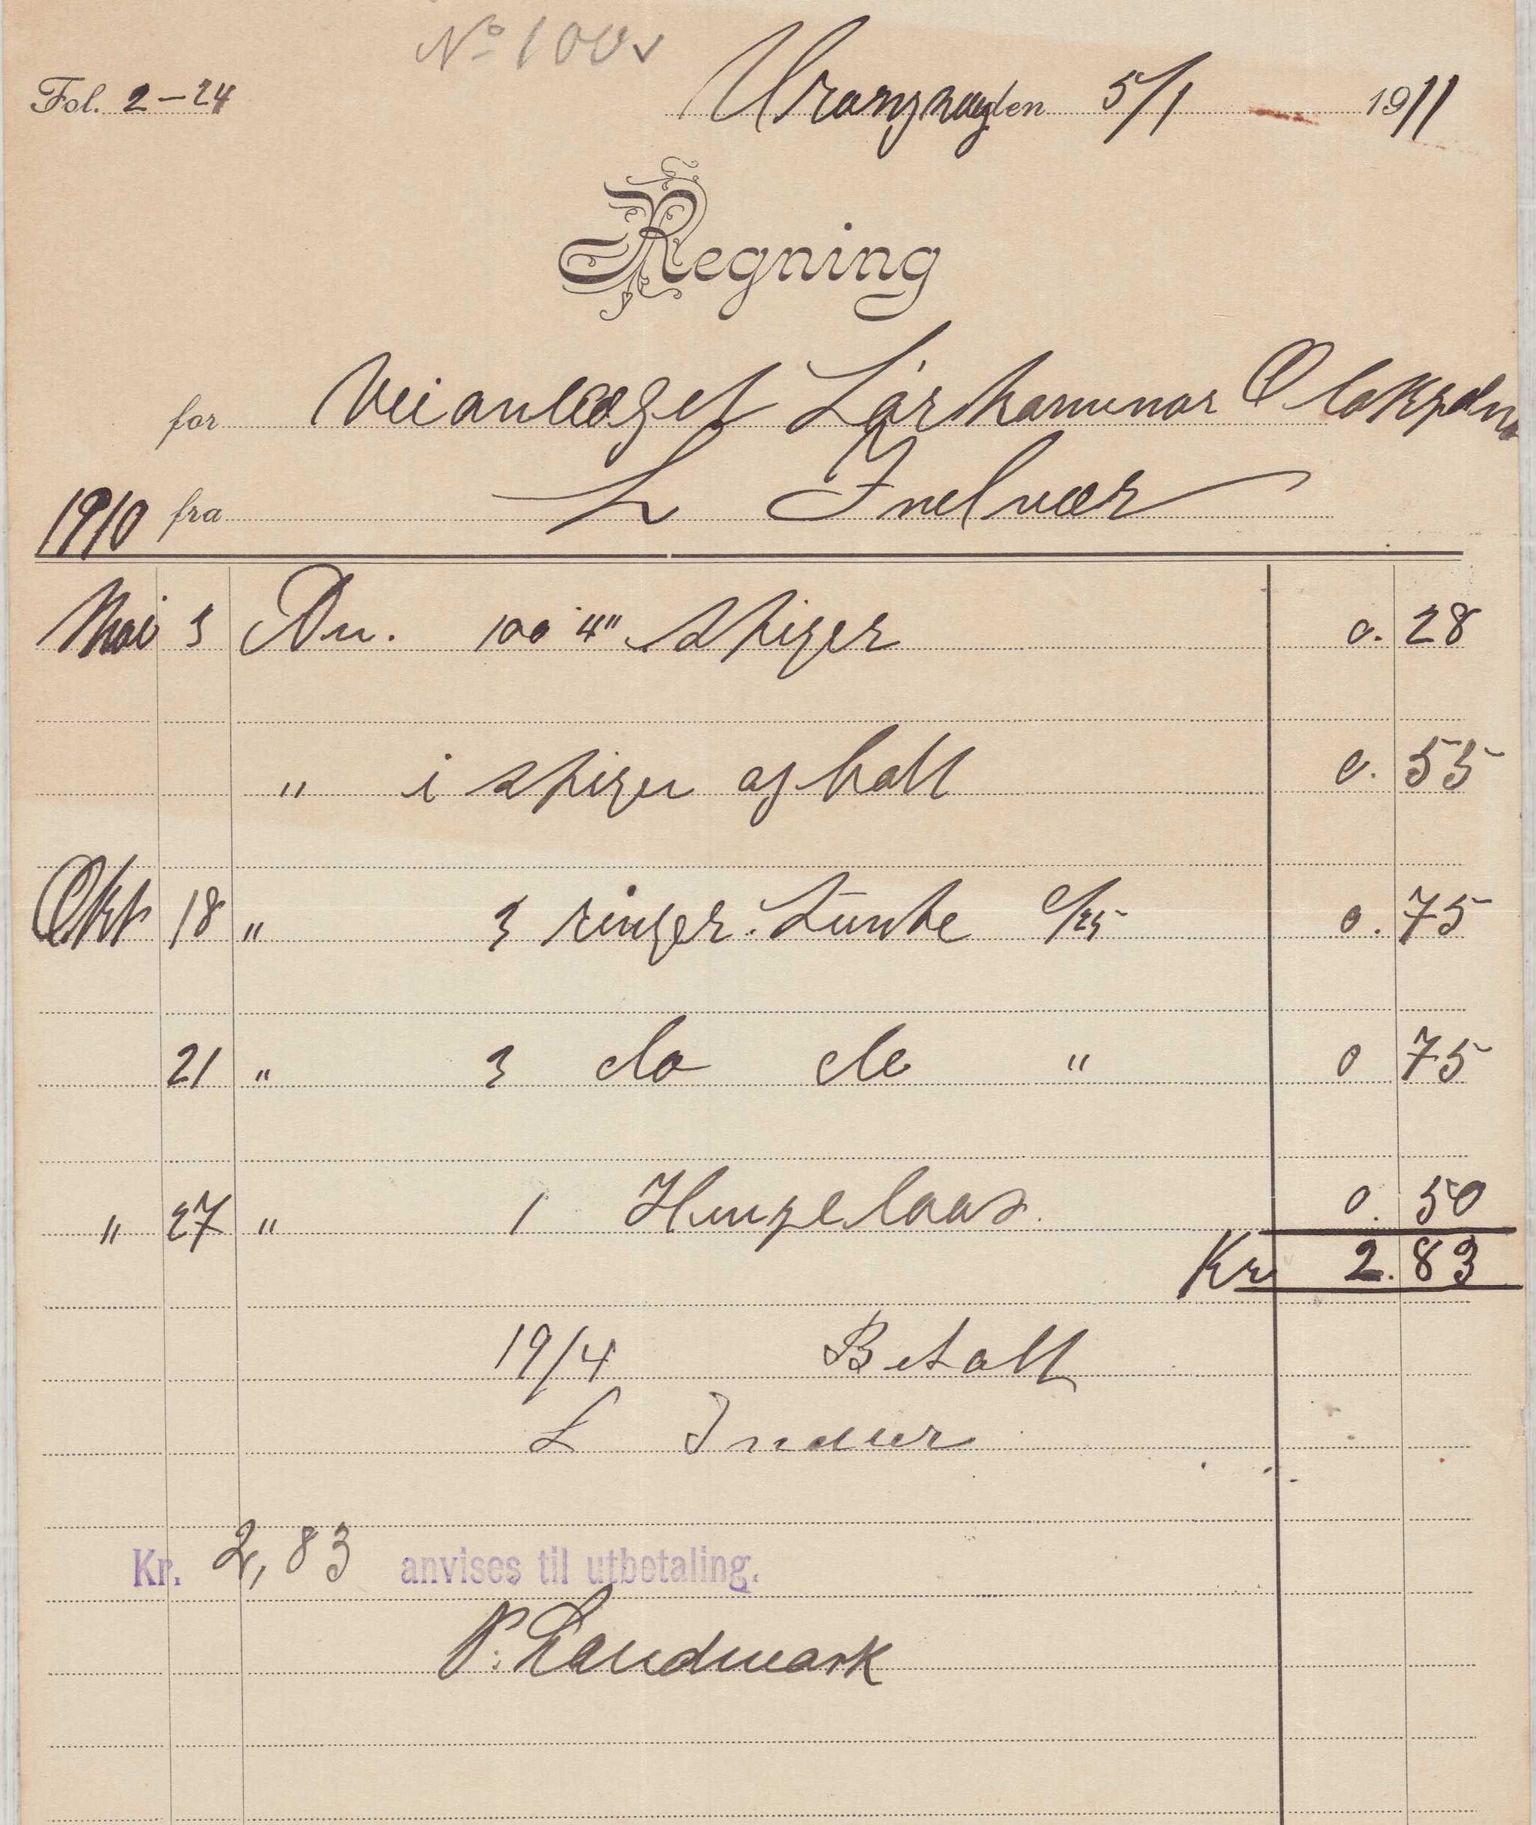 No 100 v
Fol. 2-24 den 5/1 1911
Regning
for Veianlæget
1910 fra L
Mai 3 Du. 100 4" spiger 0.28
" i spiger og bolt 0.55
Okt 18 " 3 ringer Lunte c/25 0.75
21 " 3 do do " 0 75
" 27 " 1 Hengelaas 0.50
Kr 2.83
19/4 Betalt
L
Kr. 2,83 anvises til utbetaling.
P. Landmark